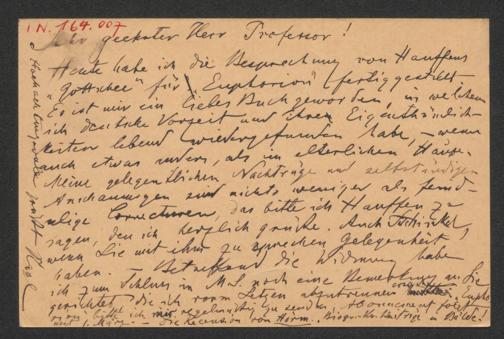 I.N. 164.007
Sehr geehrter Herr Professor!
Heute habe ich die Besprechung von Hauffens
"Gottschee" für "Euphorion" fertiggestellt.
Es ist mir ein liebes Buch geworden, in welchem
ich deutsche Vorzeit und ihren Eigenthümlich-
keiten lebend wiedergefunden habe, – wenn
auch etwas anders, als im elterlichen Hause.
Meine gelegentlichen Nachträge und selbständigen
Anschauungen sind nichts weniger als feind-
selige Correcturen, das bitte ich Hauffen zu
sagen, den ich herzlich grüße. Auch
wenn Sie mit ihm zu sprechen Gelegenheit
haben. Betreffend die Widmung habe
ich zum Schluss in M.S. noch eine Bemerkung an Sie
gerichtet, die ich vom Setzen abzutrennen bitte.
bitte ich mir regelmäßig zu senden. Abonnement folgt
mit 1. März. – Die Recension von